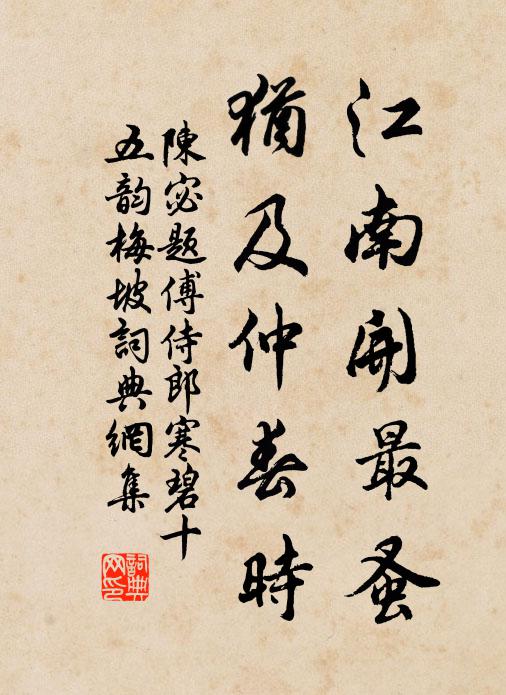 江南開最蚤
猶及仲春時
陳宓題傅侍郎寒碧十
五韵梅坡詞典網集
詞典网印